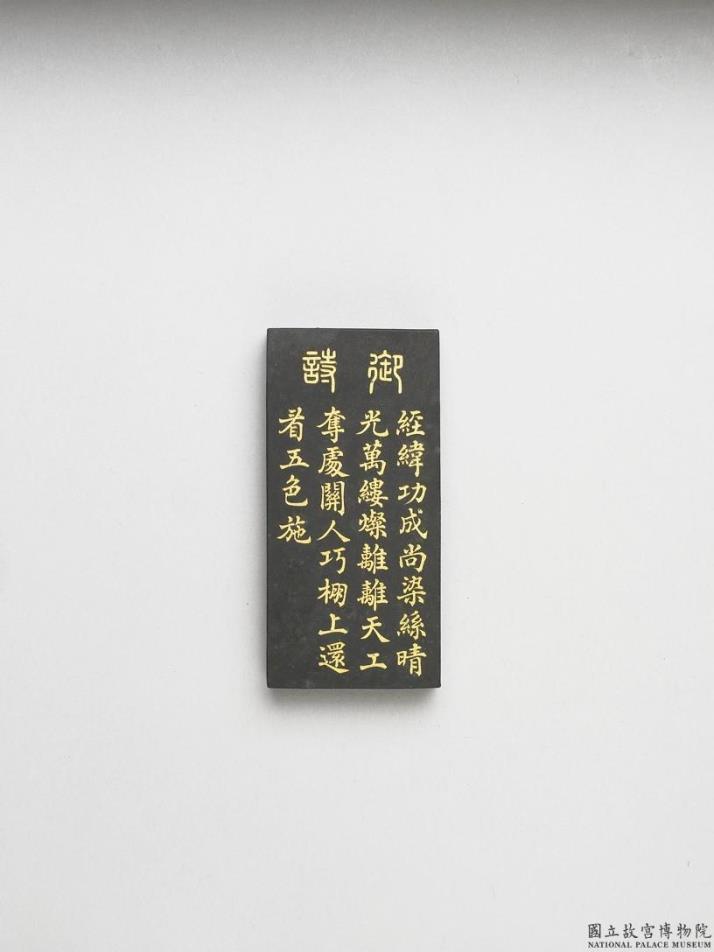 御詩
經緯功成尚染絲晴
光萬縷燦離離天工
奪處關人巧棚上還
看五色施
國立故宮博物院
NATIONAL PALACE MUSEUM